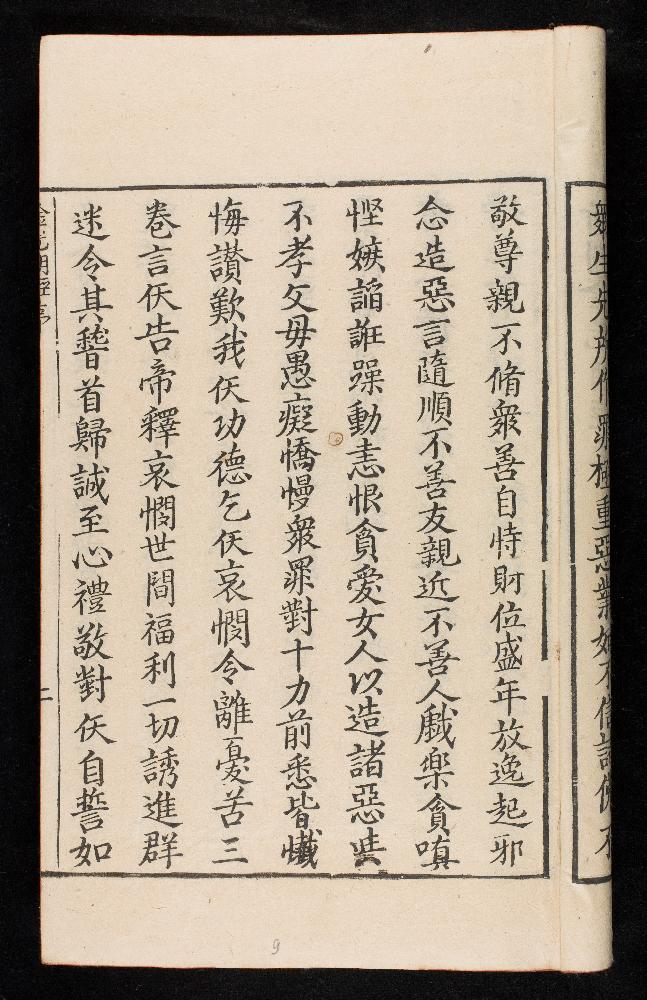 衆生先所作罪極重惡業如不信諸佛不
敬尊親不脩衆善自恃財位盛年放逸起邪
念造惡言隨順不善友親近不善人戱樂貪嗔
慳嫉謟誑躁動恚恨貪愛女人以造諸惡
不孝父母愚癡憍慢衆罪對十力前悉皆懺
悔讃歎我仸功德乞仸哀憫令離憂苦三
卷言仸告帝釋哀憫世間福利一切誘進群
迷令其稽首歸誠至心禮敬對仸自誓如
金光明經序
二
9